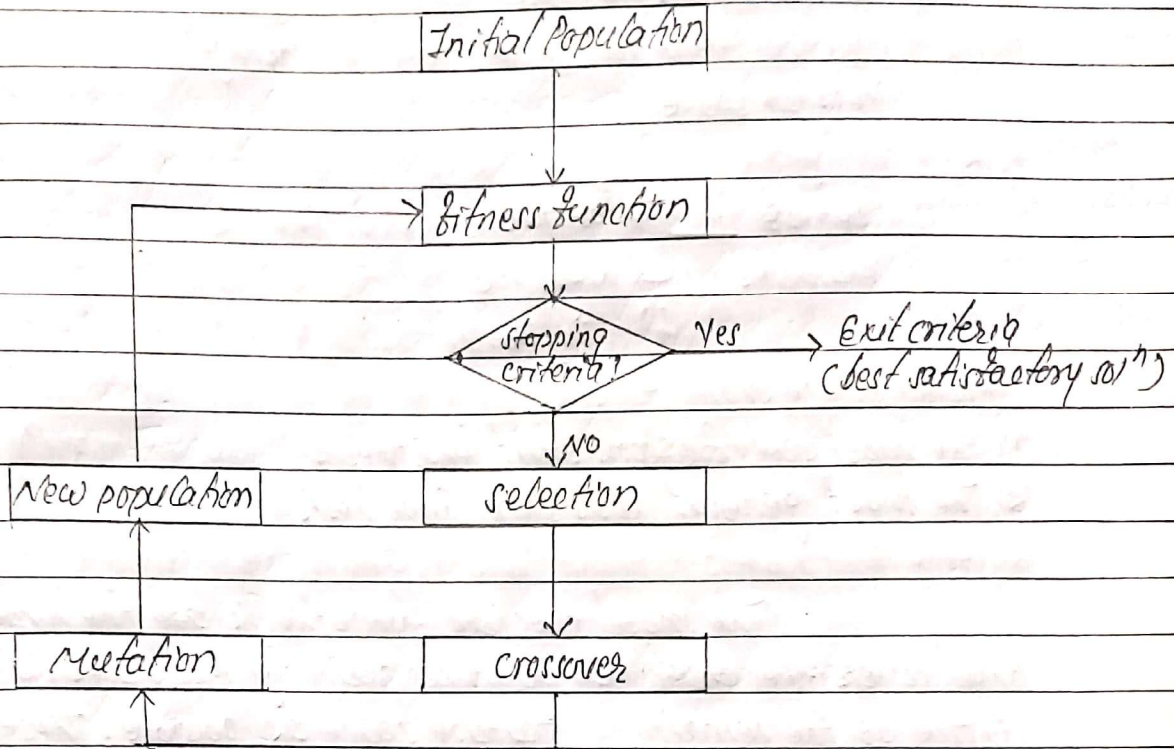 Initial Population
fitness function
stopping
criteria?
Yes
Exit criteria
(best satisfactory solⁿ)
NO
New population
selection
Mutation
crossover